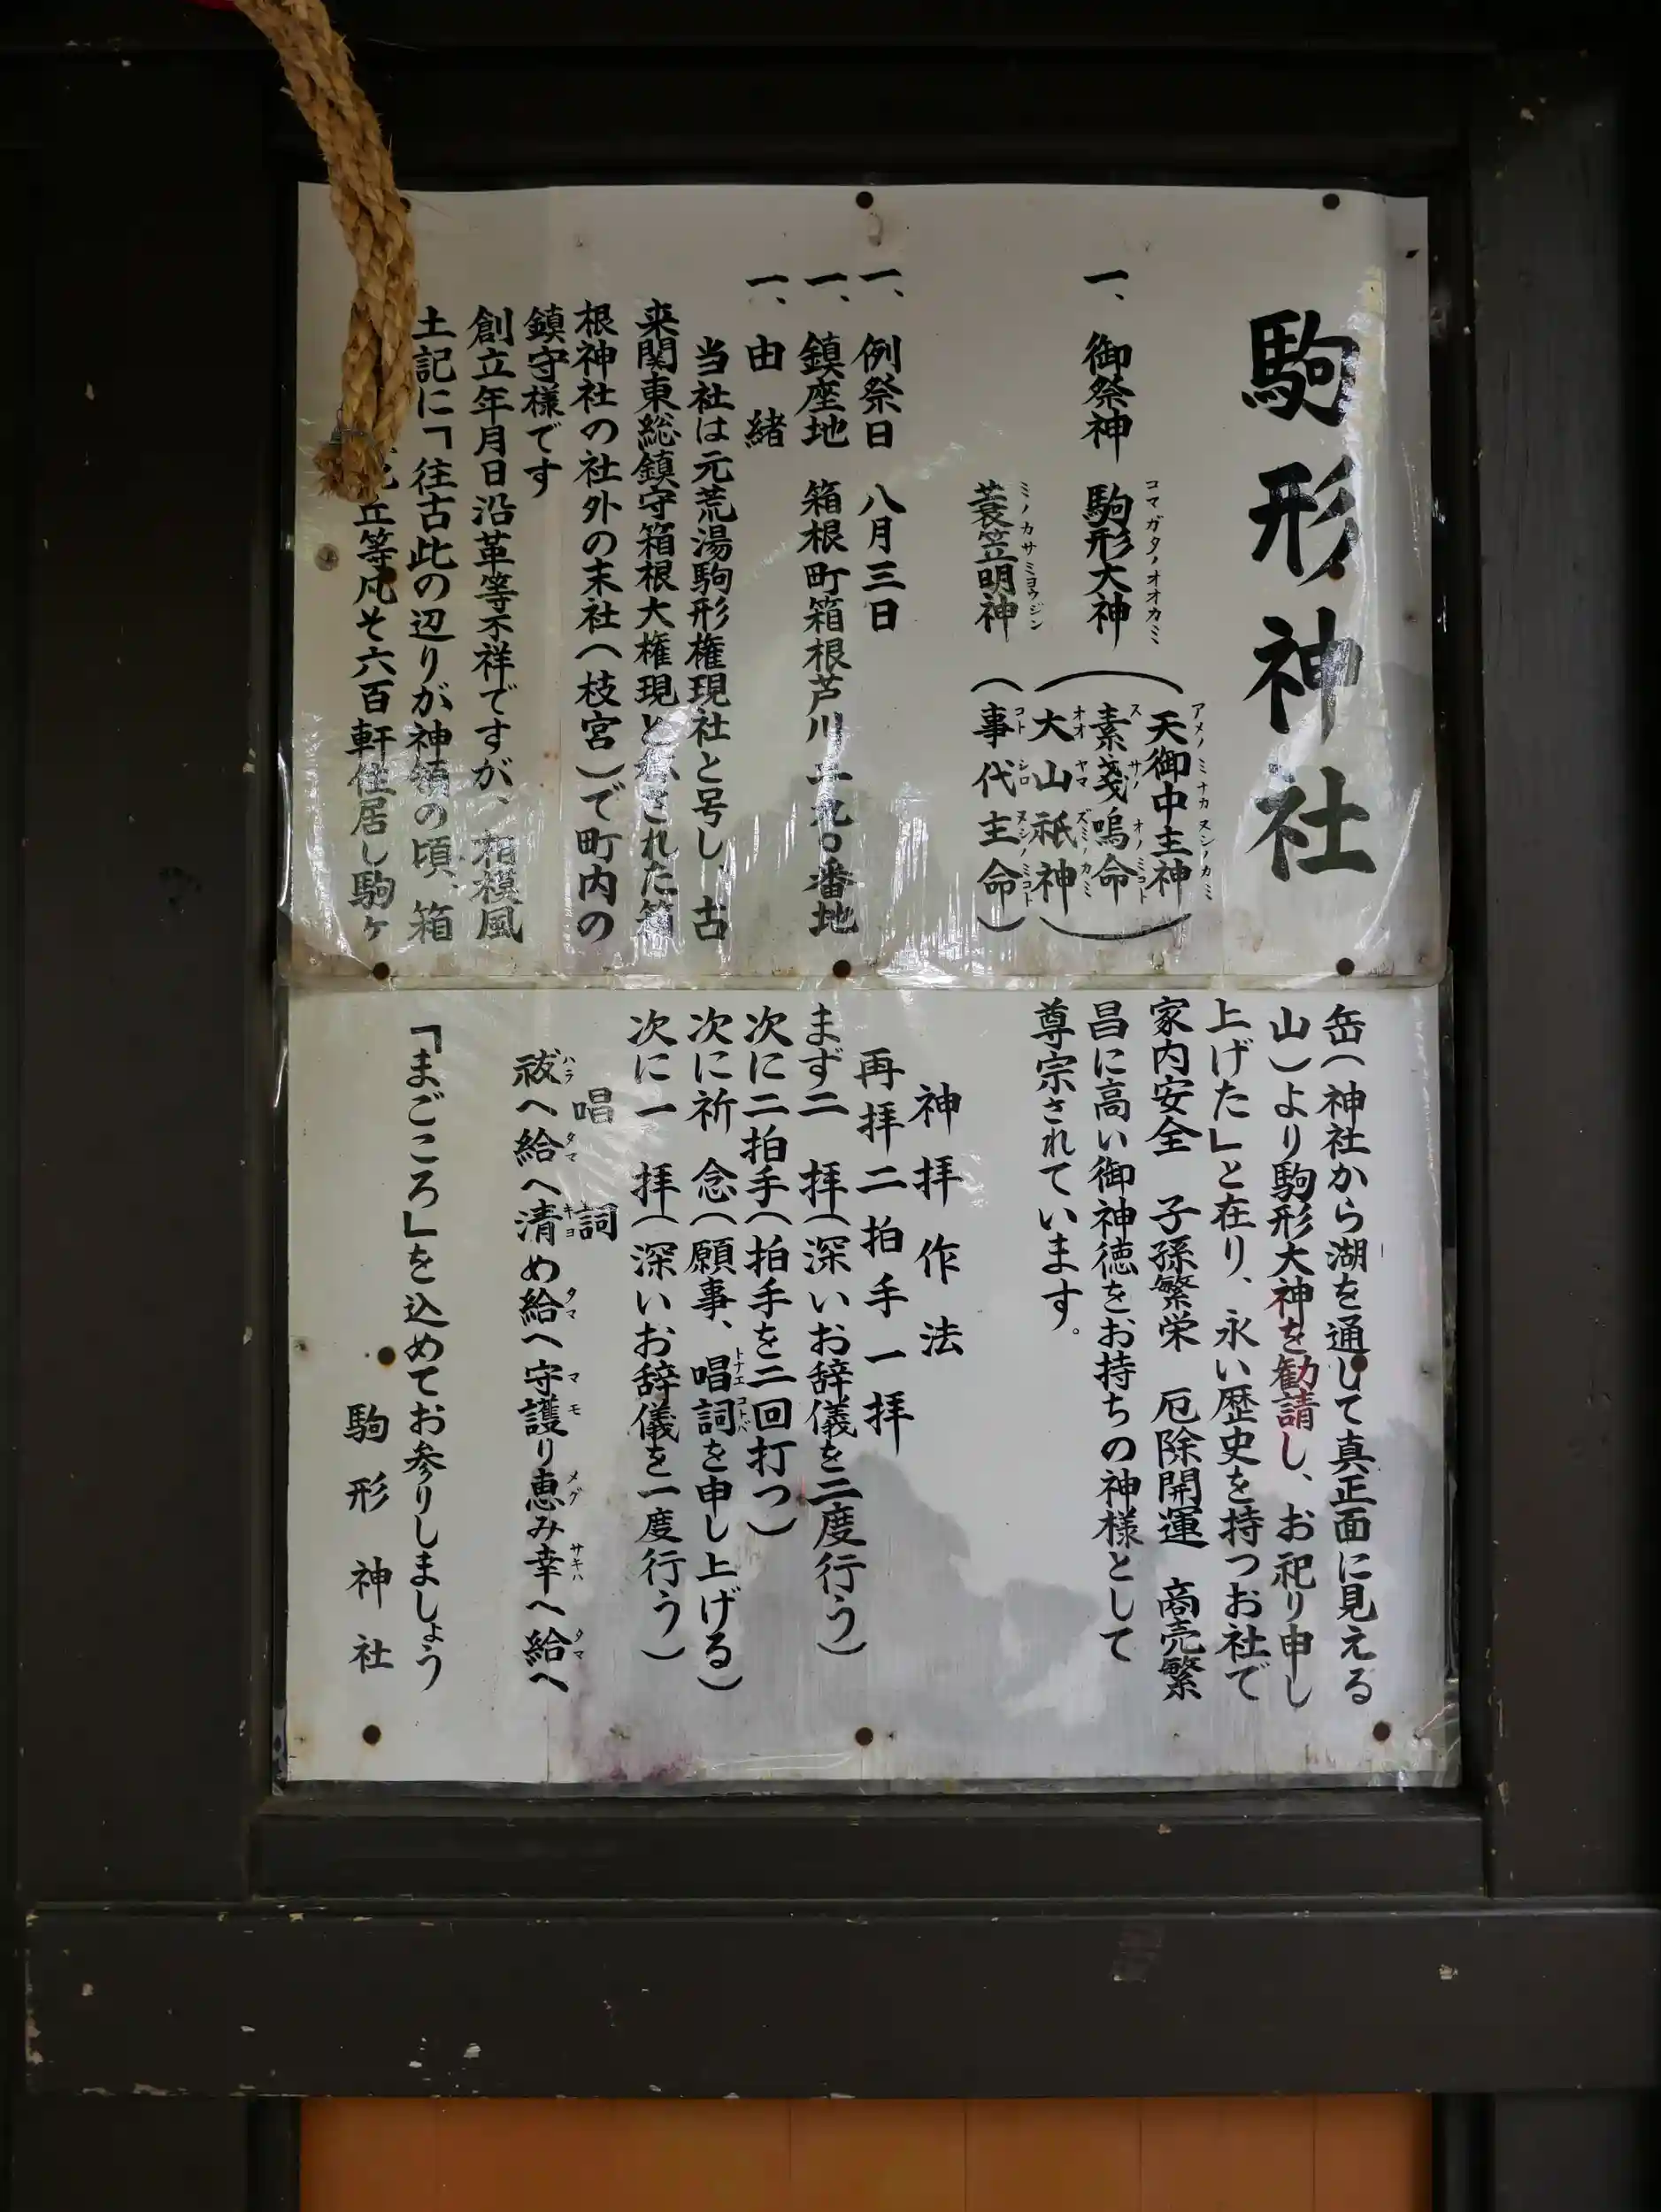 駒形神社
一、御祭神 駒形大神
コマガタノオオカミ
天御中主神
アメノミナカヌシノカミ
素戔嗚命
スサノオノミコト
大山祇神
オオヤマズミノカミ
蓑笠明神
ミノカサミョウジン
(事代主命)
コトシロヌシノミコト
一、例祭日 八月三日
一、鎮座地 箱根町箱根芦川 番地
一、由緒
当社は元荒湯駒形権現社と号し、古
来関東総鎮守箱根大権現と された箱
根神社の社外の末社(枝宮)で町内の
鎮守様です
創立年月日沿革等不祥ですが、相模風
土記に「往古此の辺りが神領の頃、箱
丘等凡そ六百軒住居し駒ヶ
缶(神社から湖を通して真正面に見える
山)より駒形大神を勧請し、お祀り申し
上げた」と在り、永い歴史を持つお社で
家内安全 子孫繁栄 厄除開運 商売繁
昌に高い御神徳をお持ちの神様として
尊宗されています。
神拝作法
再拝二拍手一拝
まず二 拝(深いお辞儀を二度行う)
次に二拍手(拍手を二回打つ)
次に祈 念(願事、唱詞を申し上げる)
トナエコトバ
次に一 拝(深いお辞儀を一度行う)
唱詞
祓へ給へ清め給へ守護り恵み幸へ給へ
ハラ タマ キヨ タマ マモ メグ サキハ タマ
「まごころ」を込めてお参りしましょう
駒形神社